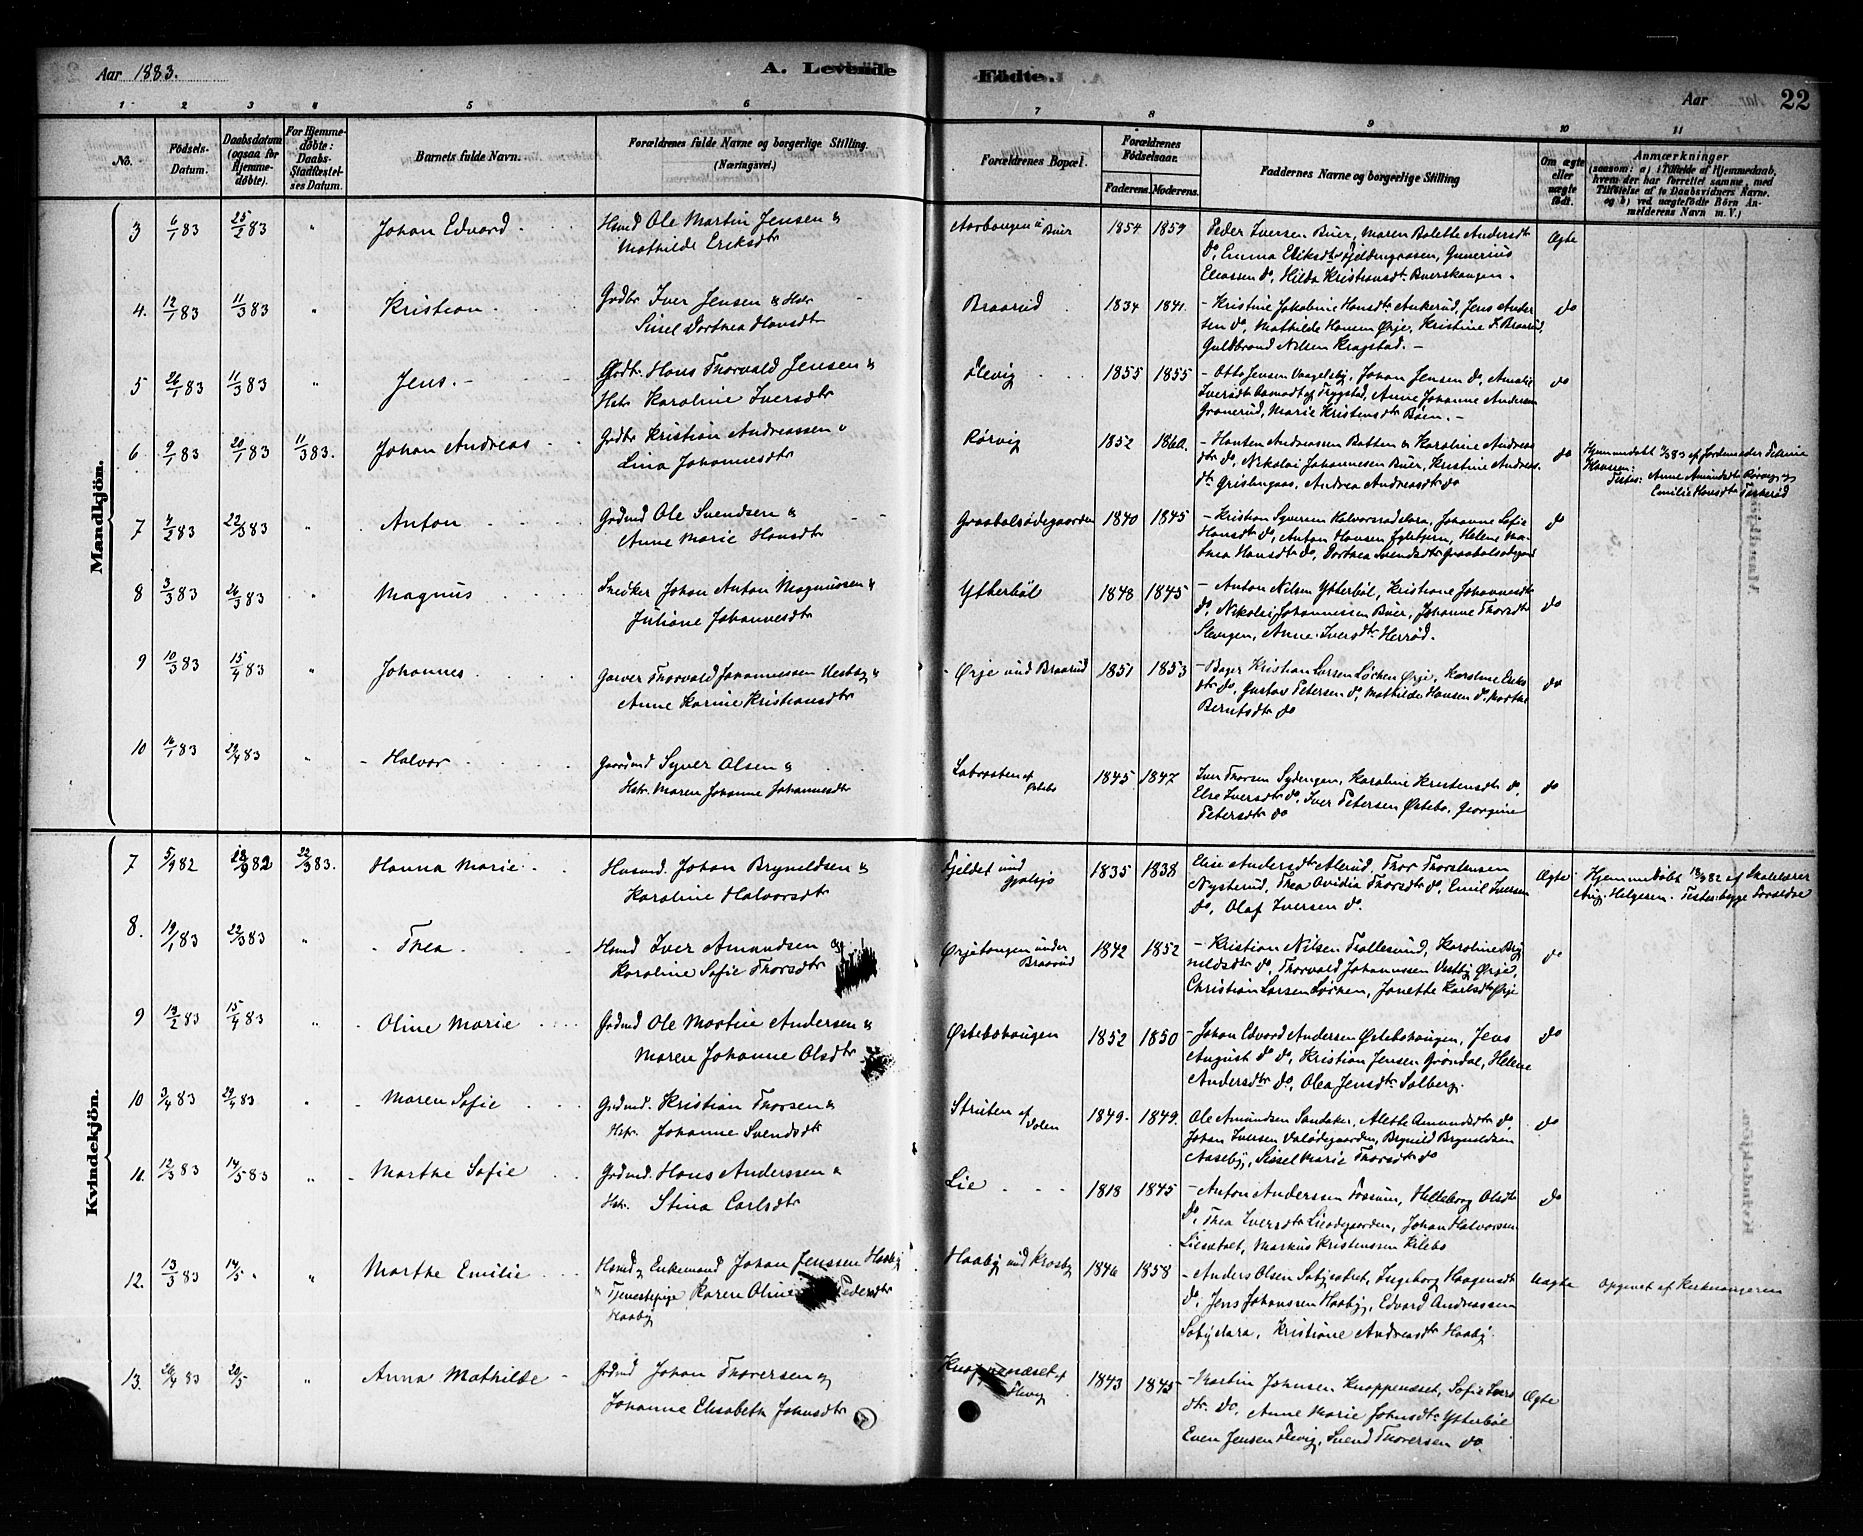 Aar 1883.
A. Levende
Fødte.
Aar
22
1 2 3 4 5 6 7 8 9 10 11
No.
Fødsels-
Datum.
Daabsdatum
(ogsaa for
Hjemme-
døbte).
For Hjemme-
døbte:
Daabs-
Stadfæstel-
ses Datum.
Barnets fulde Navn.
Forældrenes fulde Navne og borgerlige Stilling.
(Næringsvei.)
Forældrenes Bopæl.
Forældrenes
Fødselsaar.
Faderens. Moderens.
Faddernes Navne og borgerlige Stilling
Om ægte
eller
uægte
født.
Anmærkninger
(saasom: a) i Tilfælde af Hjemmedaab,
hvem der har forrettet samme, med
Tilføielse af to Daabsvidners Navne,
og b) ved uægtefødte Børn An-
melderens Navn m. V.)
Mandkjön.
3 6/1 83 25/2 83 " Johan Edvard
Hsmd Ole Martin Jensen &
Mathilde Eriksdtr
1854 1859
Peder Iversen Buer, Maren Bolette Andersdtr
do, Emma Eriksdtr Fjeldengaasen, Gunerius
Eliassen do, Hilda Kristiansdtr Buerskaugen.
Ægte
4. 12/1 83 11/3 83 " Kristian
Gdbr Iver Jensen & Hstr
Sissel Dorthea Hansdtr
Braarud
1834 1841.
Kristine Jakobine Hansdtr Ankerud, Jens Ander
sen do, Mathilde Hansen Ørje, Kristine I. Braarud,
Guldbrand Nilsen Kragstad.
do
5 26/1 83 11/3 83 " Jens.
Gdbr. Hans Thorvald Jensen &
Hstr Karoline Iversdtr
Flevig
1855 1855
Otto Jensen Vaagelsby, Johan Jensen do, Amalie
Iversdtr af Trygstad, Anne Johanne Andersen
Granerud, Marie Kristensdtr Bøen.
do
6 9/1 83 20/1 83 11/3 83. Johan Andreas
Gdbr Kristian Andreassen &
Lina Johannesdtr
Rørvig
1852 1860.
Andreassen Batten & Karoline Andreas
dtr do, Nikolai Johannesen Buer, Kristine Andreas.
dtr Grislingaas, Andrea Andreasdtr do
do
af Jordemoder
Hansen.
Testes: Anne Amundsdtr Rørvig og
Emilie Hansdtr
7 4/2 83 22/3 83 " Anton
Gdmd Ole Svendsen &
Anne Marie Hansdtr
Graabølødegaarden
1840 1845
Kristian Syversen Halvorsrødelara, Johanne Sofie
Hansdtr do, Anton Hansen, Helene Ma-
thea Hansdtr do, Dorthea Svendsdtr Graabølødegaard
do
8 3/3 83 26/3 83 " Magnus
Snedker Johan Anton Magnussen &
Juliane Johannesdtr
Ytterbøl
1848 1845
Anton Nilsen Ytterbøl, Kristiane Johannesdtr
do, Nikolai Johannessen Buer, Johanne Thorsdtr
Slangen, Anne Iversdtr Herrød.
do
9 10/3 83 15/4 83 " Johannes
Garver Thorvald Johannessen Vestby &
Anne Karine Kristiansdtr
Ørje und Braarud
1851 1853
Bager Kristian Larsen Løchen Ørje, Karoline Eriks
dtr do, Gustav Petersen do, Mathilde Hansen do, Marthe
Berntsdtr do
do
10 16/1 83 29/4 83 " Halvor
Gaardmd Syver Olsen &
Hstr. Maren Johanne Johannesdtr
Labraaten af
Østebø
1845 1847
Iver Thorsen Sydengen, Karoline Kristensdtr do,
Else Iversdtr do, Iver Petersen Østebø, Georgine
Petersdtr do
do
Kvindekjön.
7 5/9 82 18/9 82 22/3 83. Hanna Marie
Husmd. Johan Bryneldsen &
Karoline Halvorsdtr
Fjeldet und
1835 1838
Elise Andersdtr Alerud, Thor Thorstensen
Nysterud, Thea Ovidia Thorsdtr do, Emil Iversen
do, Olaf Iversen do.
Ægte
Hjemmedøbt 18/9 82 af Skolelærer
Aug. Helgesen. Testes: begge Forældre
8. 19/1 83 22/3 83 " Thea
Hsmd Iver Amundsen &
Karoline Sofie Thorsdtr
Ørjetangen under
Braarud
1842 1852
Kristian Nilsen Trollesund, Karoline Bry
nildsdtr do, Thorvald Johannessen Vestby Ørje,
Christian Larsen Løchen, Janette Karlsdtr Ørje
do
9 19/2 83 15/4 83 " Oline Marie
Gdmd Ole Martin Andersen &
Maren Johanne Olsdtr
Østebøhaugen
1852 1850
Johan Edvard Andersen Østebøhaugen, Jens
August do do, Kristian Jensen Grøndal, Helene
Andersdtr do, Olea Jensdtr Solberg.
do
10 3/4 83 29/4 83 " Maren Sofie
Gdmd. Kristian Thorsen &
Hstr. Johanne Svendsdtr
Struten af
Volen
1849. 1849.
Ole Amundsen Sandaker, Alette Amundsdtr do
Johan Iversen Valødegaarden, Brynild Bryneldsen
Aaseby, Sissel Marie Thorsdtr do
do
11. 12/3 83 14/5 83 " Marthe Sofie
Gdmd. Hans Anderssen &
Hstr. Stina Carlsdtr
Lie
1818 1845
Anton Anderssen Fossum, Helleborg Olsdtr
do, Thea Iversdtr Lieødegaarden, Johan Halvorsen
Liesætret, Markus Kristenssen Kilebo
do
12. 13/3 83 14/5 " " Marthe Emilie
Hsmd og Enkemand Johan Jenssen Haaby
& Tjenestepige Karen Oline Pedersdtr
Haaby
Haaby und Krosby
1846 1858
Anders Olsen Sabysætret, Ingeborg Haagensdtr
do, Jens Johanssen Haaby, Edvard Andreassen
Sabyelara, Kristiane Andreasdtr Haaby.
Uægte
Opgivet af Kirkesangeren
13. 26/4 83 20/5 " Anna Mathilde
Gdmd Johan Thoresen og
Johanne Elisabeth Johnsdtr
Knappenæset af
Flevig
1843 1845
Martin Johnsen Knappenæset, Sofie Lars
dtr. do, Anne Marie Johnsdtr Ytterbøl
Even Jensen Flevig, Svend Thoresen do.
Ægte